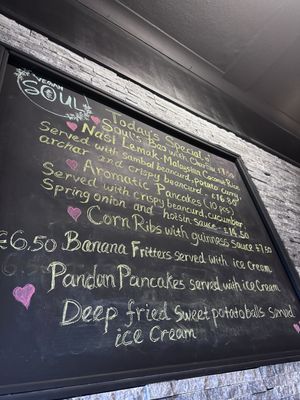 VEGAN
SOUL
Today's Special
Soul's Bao with Char Siu £8.50
Nasi Lemak-Malaysian Coconut Rice
Served with Sambal beancurd, potato curry
archar and crispy beancurd £16.80
Aromatic Pancakes (10 pcs)
Served with crispy beancurd, cucumber
Spring onion and hoisin sauce £14.50
Corn Ribs with guinness sauce £7.50
£6.50 Banana Fritters served with ice Cream
Pandan Pancakes served with ice Cream
Deep fried Sweet potato balls served
ice Cream